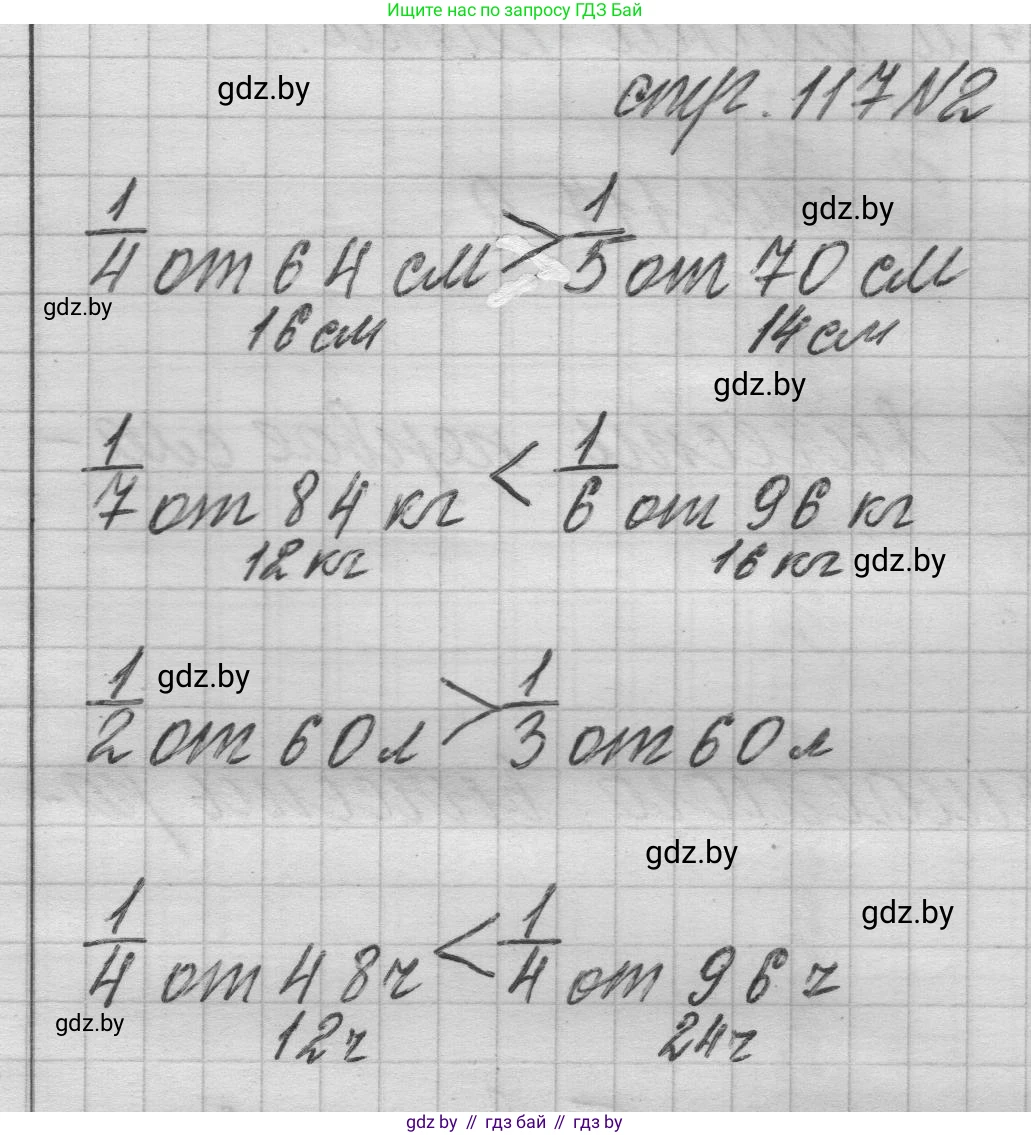 Ищите нас по запросу ГДЗ Бай
gdz.by
стр. 117 №2
1/4 от 64 см > 1/5 от 70 см
gdz.by
gdz.by
16 см 14 см
gdz.by
1/7 от 84 кг < 1/6 от 96 кг
12 кг 16 кг gdz.by
gdz.by
1/2 от 60 л > 1/3 от 60 л
gdz.by
gdz.by
1/4 от 48 ч < 1/4 от 96 ч
gdz.by
12 ч 24 ч
gdz.by // гдз бай // гдз by